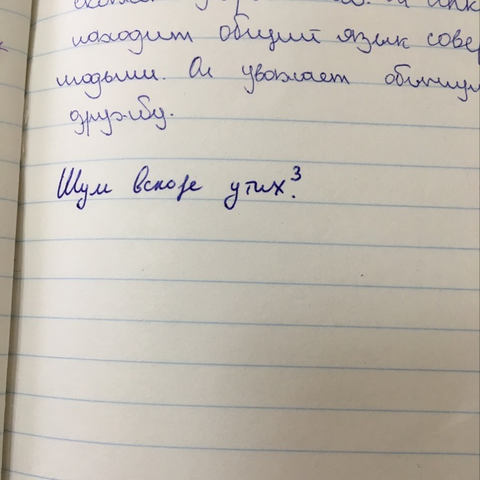 находит общий язык
людьми. Он уважает
дружбу.
Шум вскоре утих³.